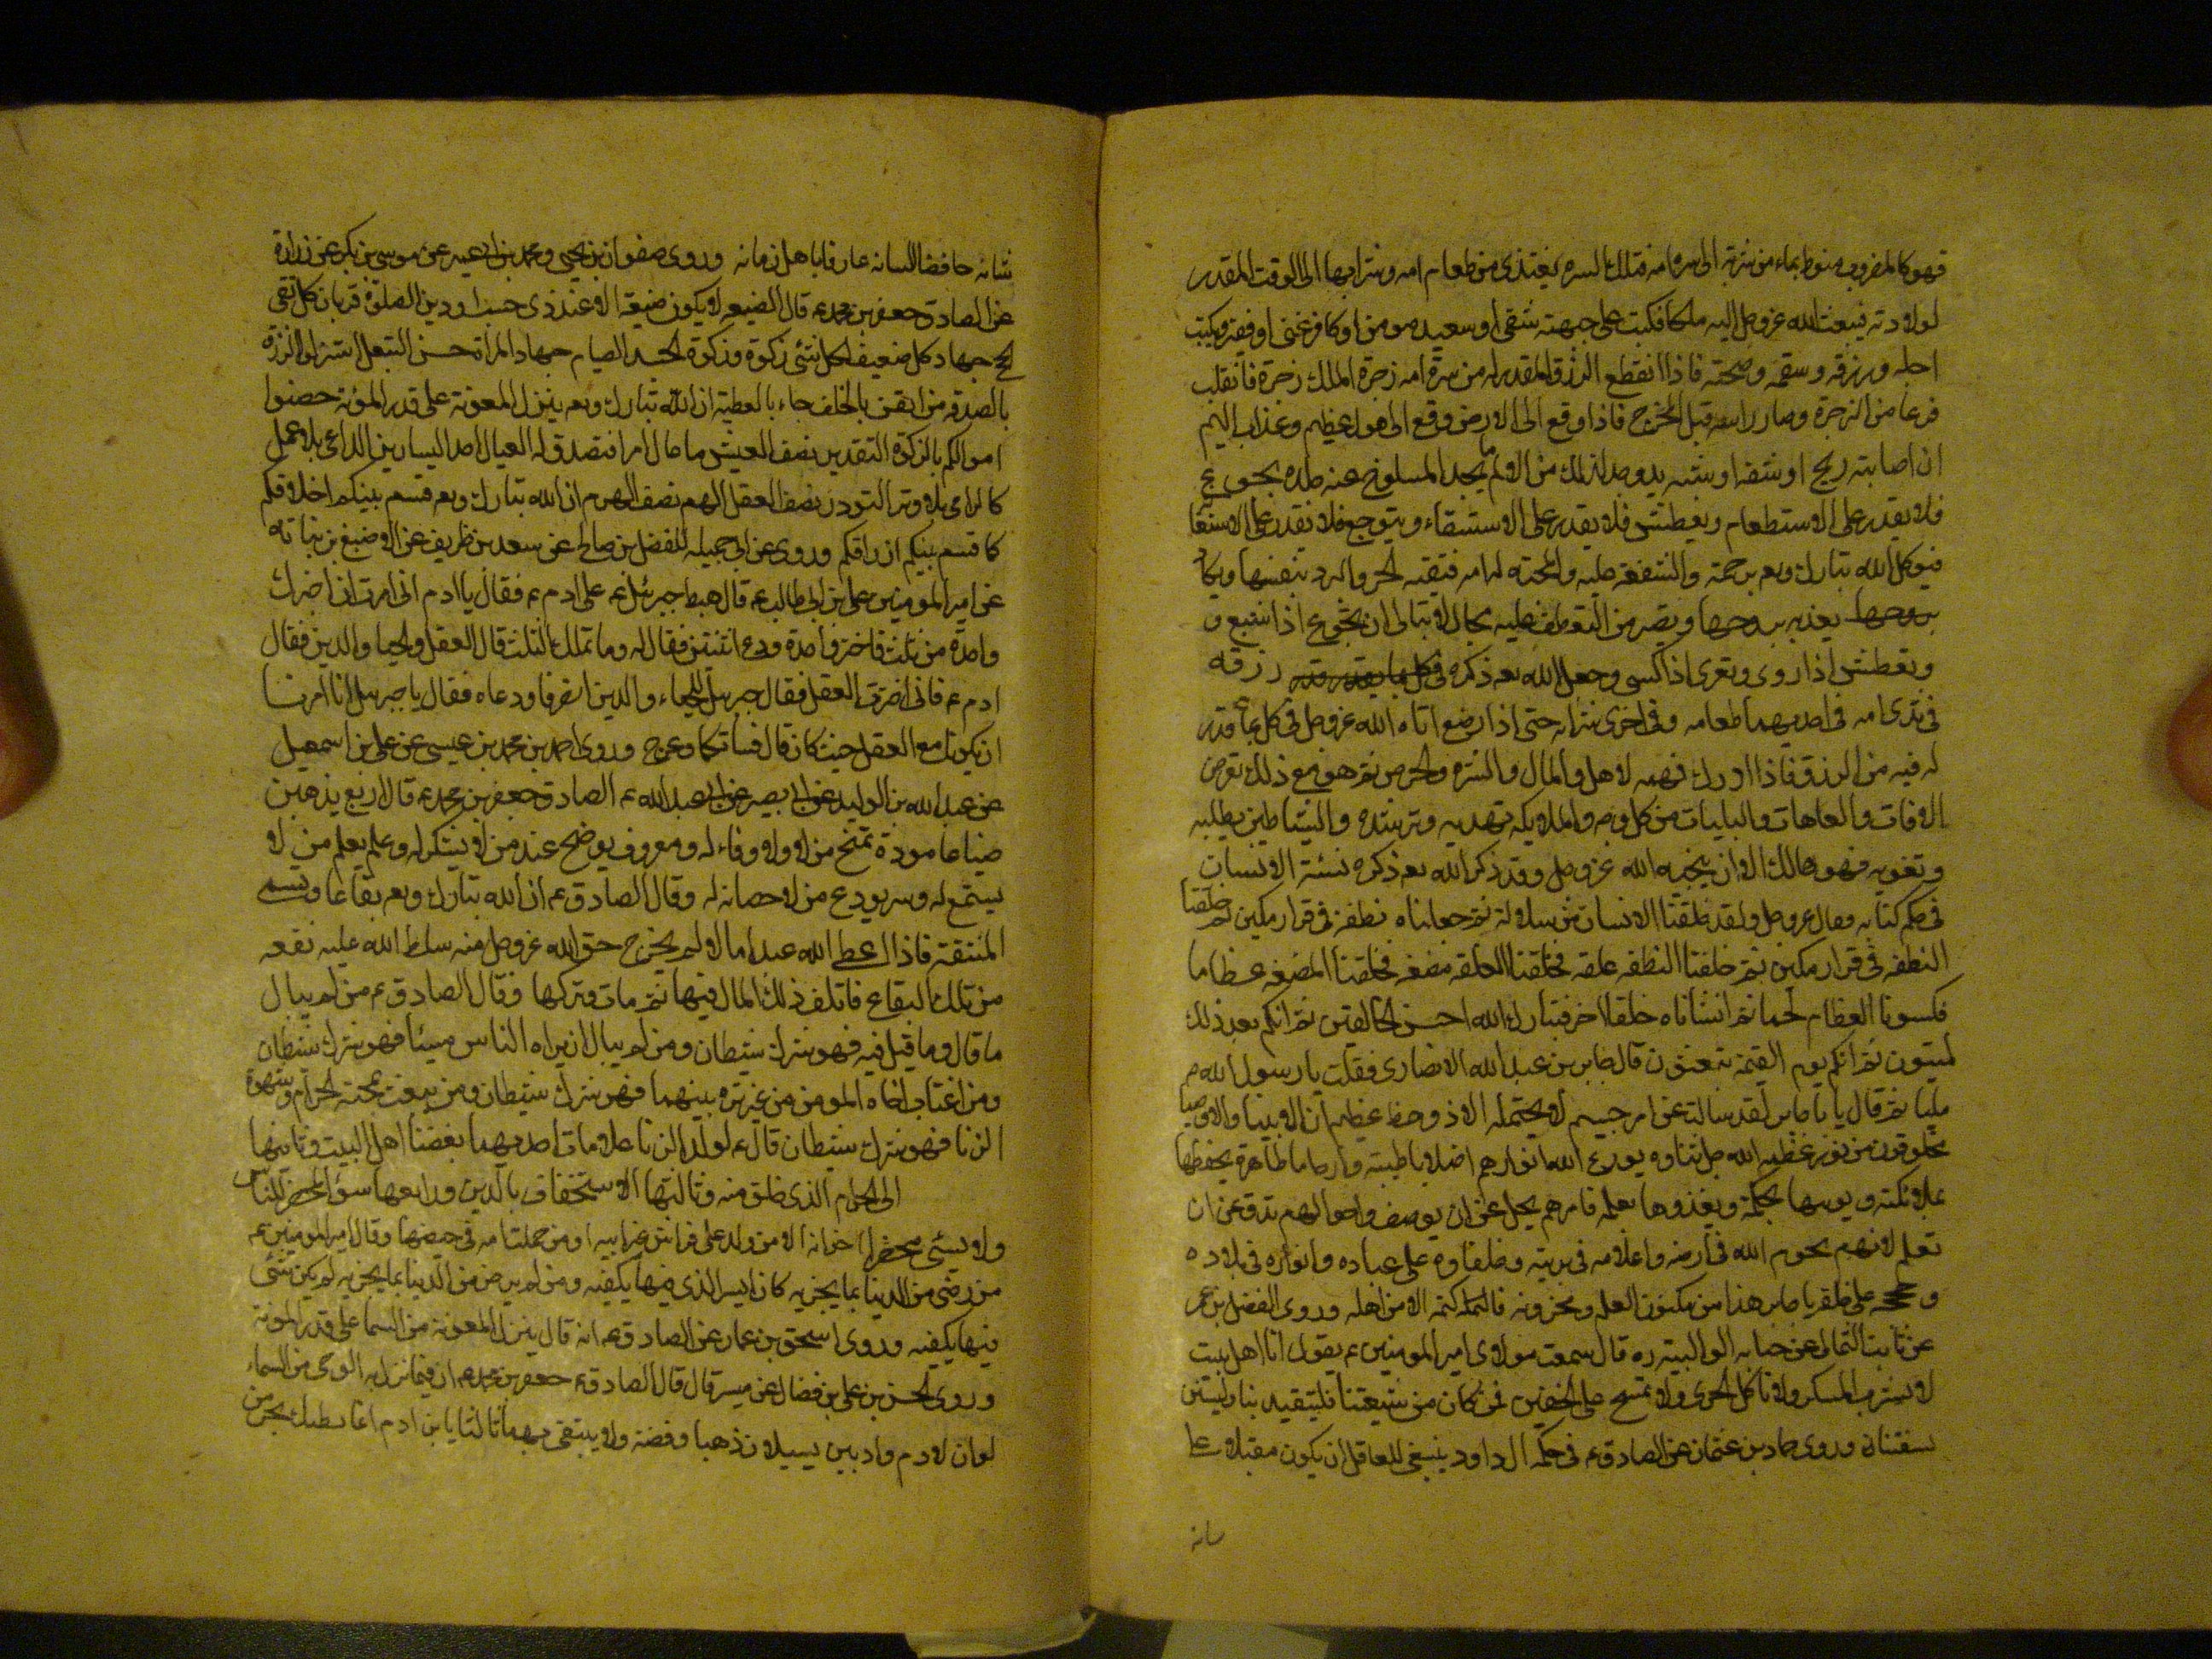 فهو كالمفرود منوط بمعاء من سرته الى سره امه فبتلك السره يغتذى من طعام امه وشرابها الى الوقت المقدر
لولادته فيبعث الله عز وجل اليه ملكا فيكتب على جبهته شقى او سعيد مومن او كافر غنى او فقير ويكتب
اجله ورزقه وسقمه وصحته فاذا انقطع الرزق المقدر له من سرة امه زجره الملك زجرة فانقلب
فزعا من الزجرة وصار راسه قبل المخرج فاذا وقع الى الارض وقع الى هول عظيم وعذاب اليم
ان اصابته ريح او مشقه او مسته يد وجد لذلك من الالم ما يجد المسلوخ عنه جلده يجوع
فلا يقدر على الاستطعام ويعطش فلا يقدر على الاستسقاء ويتوجع فلا يقدر على الاستغا
فيوكل الله تبارك وتع برحمته والشفقه عليه والمحبه له امه فتقيه الحر والبرد بنفسها وتكاد
تفديه بروحها وتصير من التعطف عليه بحال لا تبالى ان تجوع اذا شبع و
وتعطش اذا روى وتعرى اذا كسى وجعل الله تع ذكره رزقه
فى ثدى امه فى احديهما طعامه وفى اخرى شرابه حتى اذا رضع اتاه الله عز وجل فى كل يوم بما قدر
له فيه من الرزق فاذا ادرك فهمه الاهل والمال والشره والحرص ثم هو مع ذلك يعرض
الافات والعاهات والبليات من كل وجه والملايكه تهديه وترشده والشياطين يطلبه
وتغويه فهو هالك الا ان ينجيه الله عز وجل وقد ذكر الله تع ذكره نسبة الانسان
فى محكم كتابه وقال عز وجل ولقد خلقنا الانسان من سلالة ثم جعلناه نطفة فى قرار مكين ثم خلقنا
النطفه فى قرار مكين ثم خلقنا النطفه علقه فخلقنا العلقه مضغه فخلقنا المضغه عظاما
فكسونا العظام لحما ثم انشاناه خلقا اخر فتبارك الله احسن الخالقين ثم انكم بعد ذلك
لميتون ثم انكم يوم القيمة تبعثون قال جابر بن عبد الله الانصارى فقلت يا رسول الله
مليا ثم قال يا جابر لقد سالت عن امر جسيم لا يحتمله الا ذو حظ عظيم ان الانبيا والاوصيا
مخلوقون من نور عظمه الله جل ثناوه يودع الله انوارهم اصلابا طيبة وارحاما طاهرة يحفظها
بملائكته ويربيها بحكمته ويغذوها بعلمه فامرهم يجل عن ان يوصف واحوالهم تدق عن ان
تعلم لانهم نجوم الله فى ارضه واعلامه فى بريته وخلفاوه على عباده وانواره فى بلاده
وحججه على خلقه يا جابر هذا من مكنون العلم ومخزونه فاكتمه الا من اهله وروى المفضل بن عمر
عن ثابت الثمالى عن حبابه الوالبيه ره قال سمعت مولاى امير المومنين ع يقول انا اهل بيت
لا نشرب المسكر ولا ناكل الجرى ولا نمسح على الخفين فمن كان من شيعتنا فليقتد بنا وليستن
بسنتنا وروى حماد بن عثمان عن الصادق ع فى حكمه ال داود ينبغى للعاقل ان يكون مقبلا على
سانه
شانه حافظا للسانه عارفا باهل زمانه وروى صفوان بن يحيى ومحمد بن ابى عمير عن موسى بن بكر عن زرارة
عن الصادق جعفر بن محمد ع قال الصنيعه لا يكون صنيعة الا عند ذى حسب او دين الصلوة قربان كل تقى
الحج جهاد كل ضعيف لكل شئ زكوة وزكوة الجسد الصيام جهاد المراة حسن التبعل استنزلوا الرزق
بالصدقه من ايقن بالخلف جاء بالعطية ان الله تبارك وتع ينزل المعونة على قدر المؤنة حصنوا
اموالكم بالزكوة التقدير نصف العيش ما عال امرا فتصدق له العيال احد اليسارين الداعى بلا عمل
كالرامى بلا وتر التودد نصف العقل الهم نصف الهرم ان الله تبارك وتع قسم بينكم اخلاقكم
كما قسم بينكم ارزاقكم وروى عن ابى جميله المفضل بن صالح عن سعد بن طريف عن الاصبغ بن نباته
عن امير المومنين على بن ابى طالب ع قال هبط جبرئيل ع على ادم ع فقال يا ادم انى امرت ان اخيرك
واحدة من ثلث فاختر واحدة ودع اثنتين فقال له وما تلك الثلث قال العقل والحيا والدين فقال
ادم ع فانى اخترت العقل فقال جبرئيل للحياء والدين انصرفا ودعاه فقال يا جبرئيل انا امرنا
ان نكون مع العقل حيث كان قال فشانكما وعرج وروى احمد بن محمد بن عيسى عن على بن اسمعيل
عن عبد الله بن الوليد عن ابى بصير عن ابى عبد الله ع الصادق جعفر بن محمد ع قال اربع يذهبن
ضياعا مودة تمنح من لا وفاء له ومعروف يوضع عند من لا يشكر له وعلم يعلم من لا
يستمع له وسر يودع من لا حصانه له وقال الصادق ع ان الله تبارك وتع بقاعا وتسمى
المنتقمة فاذا اعطى الله عبدا مالا ولم يخرج حق الله عز وجل منه سلط الله عليه بقعه
من تلك البقاع فاتلف ذلك المال فيها ثم مات وتركها وقال الصادق ع من لم يبال
ما قال وما قيل فيه فهو شرك شيطان ومن لم يبال ان يراه الناس مسيئا فهو شرك شيطان
ومن اغتاب اخاه المومن من غير تره بينهما فهو شرك شيطان ومن شعف بمحبة الحرام وشهوة
الزنا فهو شرك شيطان قال ع لولد الزنا علامات احديهما بغضنا اهل البيت وثانيها
الى الحرام الذى خلق منه وثالثها الاستخفاف بالدين ورابعها سؤ المحضر للناس
ولا يسئ محضر اخوانه الا من ولد على فراش غير ابيه او من حملت امه فى حيضها وقال امير المومنين ع
من رضى من الدنيا بما يجزيه كان ايسر الذى فيها يكفيه ومن لم يرض من الدنيا بما يجزيه لم يكن شئ
فيها يكفيه وروى اسحق بن عمار عن الصادق ع انه قال ينزل المعونه من السما على قدر المونة
وروى الحسن بن على بن فضال عن ميسر قال قال الصادق ع جعفر بن محمد ع ان فيما نزل به الوحى من السماء
لو ان لادم واديين يسيلان ذهبا وفضة ولا يبتغى بهما ثالثا يا بن ادم انما بطنك بحر من